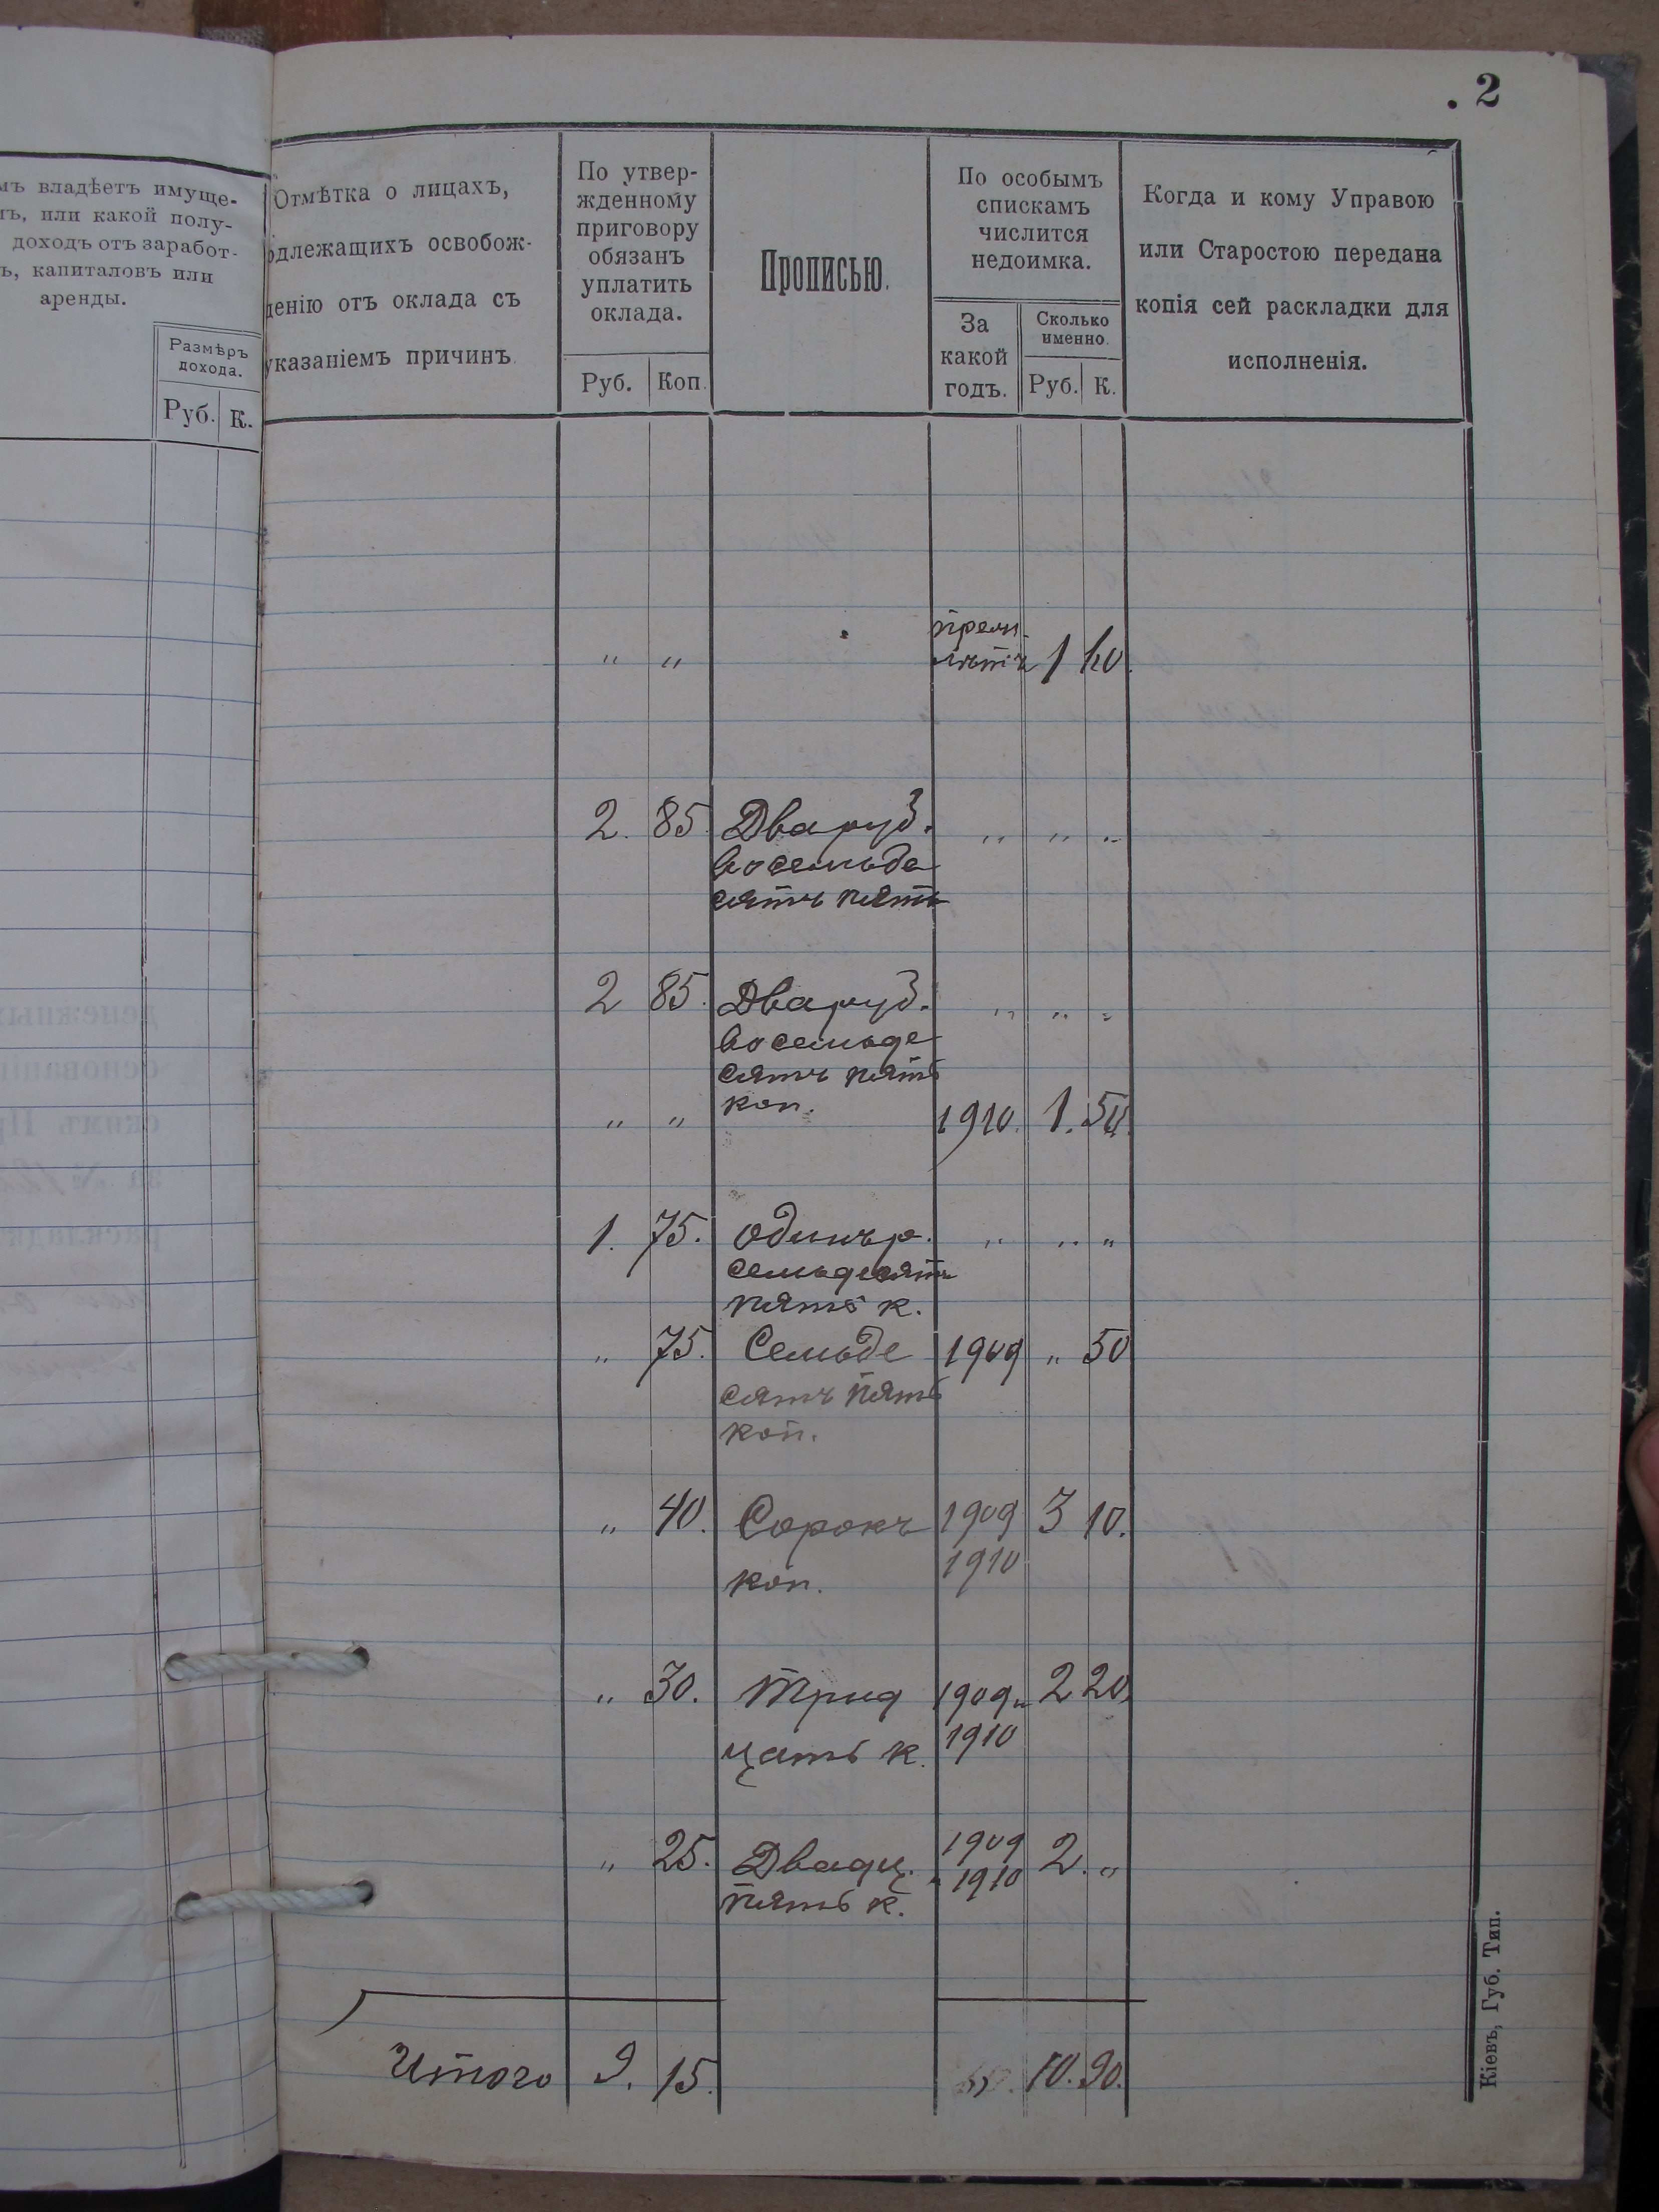 . 2
мъ владѣетъ имуще-
ть, или какой полу-
доходъ отъ заработ-
ъ, капиталовъ или
аренды.
Размѣръ
дохода.
Руб. К.
Отмѣтка о лицахъ,
одлежащихъ освобож-
денію отъ оклада съ
указаніемъ причинъ.
По утвер-
жденному
приговору
обязанъ
уплатить
оклада.
Руб. Коп.
Прописью.
По особымъ
спискамъ
числится
недоимка.
За
какой
годъ.
Сколько
именно.
Руб. К.
Когда и кому Управою
или Старостою передана
копія сей раскладки для
исполненія.
" " 1
2. 85. Два руб. " " "
восемьде
сятъ пять
2 85. Два руб. " " "
восемьде
сятъ пять
коп.
" " 1910. 1. 50.
1. 75. одинъ р. " " "
семьдесятъ
пять к.
" 75. Семьде 1909 " 50
сятъ пять
коп.
" 40. Сорокъ 1909 3 10.
коп. 1910
" 30. Трид 1909 и 2 20.
цать к. 1910
" 25. Двадц. 1909 2. "
пять к. 1910
Итого 9. 15. 10. 90.
Кіевъ, Губ. Тип.